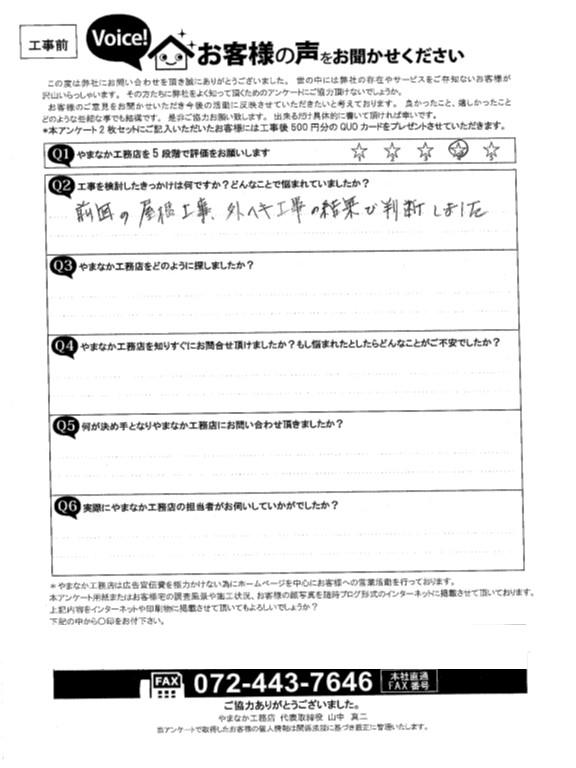 工事前
Voice!
お客様の声をお聞かせください
この度は弊社にお問い合わせを頂き誠にありがとうございました。 世の中には弊社の存在やサービスをご存知ないお客様が
沢山いらっしゃいます。 その方たちに弊社をよく知って頂くためのアンケートにご協力頂けないでしょうか。
お客様のご意見をお聞かせいただき今後の活動に反映させていただきたいと考えております。 良かったこと、嬉しかったこと
どのような些細な事でも結構です。 是非ご協力お願い致します。 出来るだけ具体的に書いて頂ければ幸いです。
*本アンケート2枚セットにご記入いただいたお客様には工事後500円分のQUOカードをプレゼントさせていただきます。
Q1 やまなか工務店を5段階で評価をお願いします 1 2 3 4 5
Q2 工事を検討したきっかけは何ですか?どんなことで悩まれていましたか?
前回の屋根工事、外ヘキ工事の結果で判断しました
Q3 やまなか工務店をどのように探しましたか?
Q4 やまなか工務店を知りすぐにお問合せ頂けましたか?もし悩まれたとしたらどんなことがご不安でしたか?
Q5 何が決め手となりやまなか工務店にお問い合わせ頂きましたか?
Q6 実際にやまなか工務店の担当者がお伺いしていかがでしたか?
*やまなか工務店は広告宣伝費を極力かけない為にホームページを中心にお客様への営業活動を行っております。
本アンケート用紙またはお客様宅の調査風景や施工状況、お客様の顔写真を随時ブログ形式のインターネットに掲載させて頂いております。
上記内容をインターネットや印刷物に掲載させて頂いてもよろしいでしょうか?
下記の中から〇印をお付下さい。
FAX 072-443-7646 本社直通 FAX番号
ご協力ありがとうございました。
やまなか工務店 代表取締役 山中 真二
当アンケートで取得したお客様の個人情報は関係法規に基づき厳正に管理いたします。